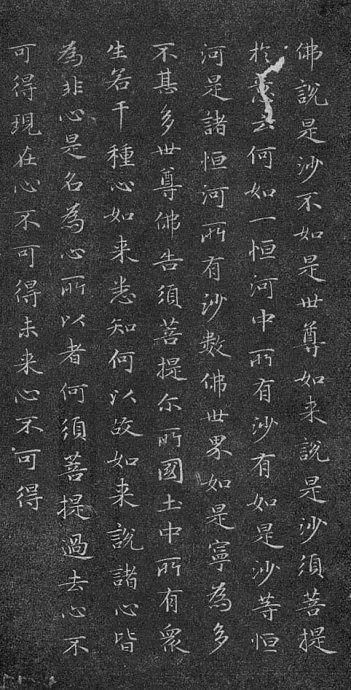 佛說是沙不如是世尊如来說是沙須菩提
於意云何如一恒河中所有沙有如是沙等恒
河是諸恒河所有沙數佛世界如是寧為多
不甚多世尊佛告須菩提尔所國土中所有衆
生若干種心如来悉知何以故如来說諸心皆
為非心是名為心所以者何須菩提過去心不
可得現在心不可得未来心不可得